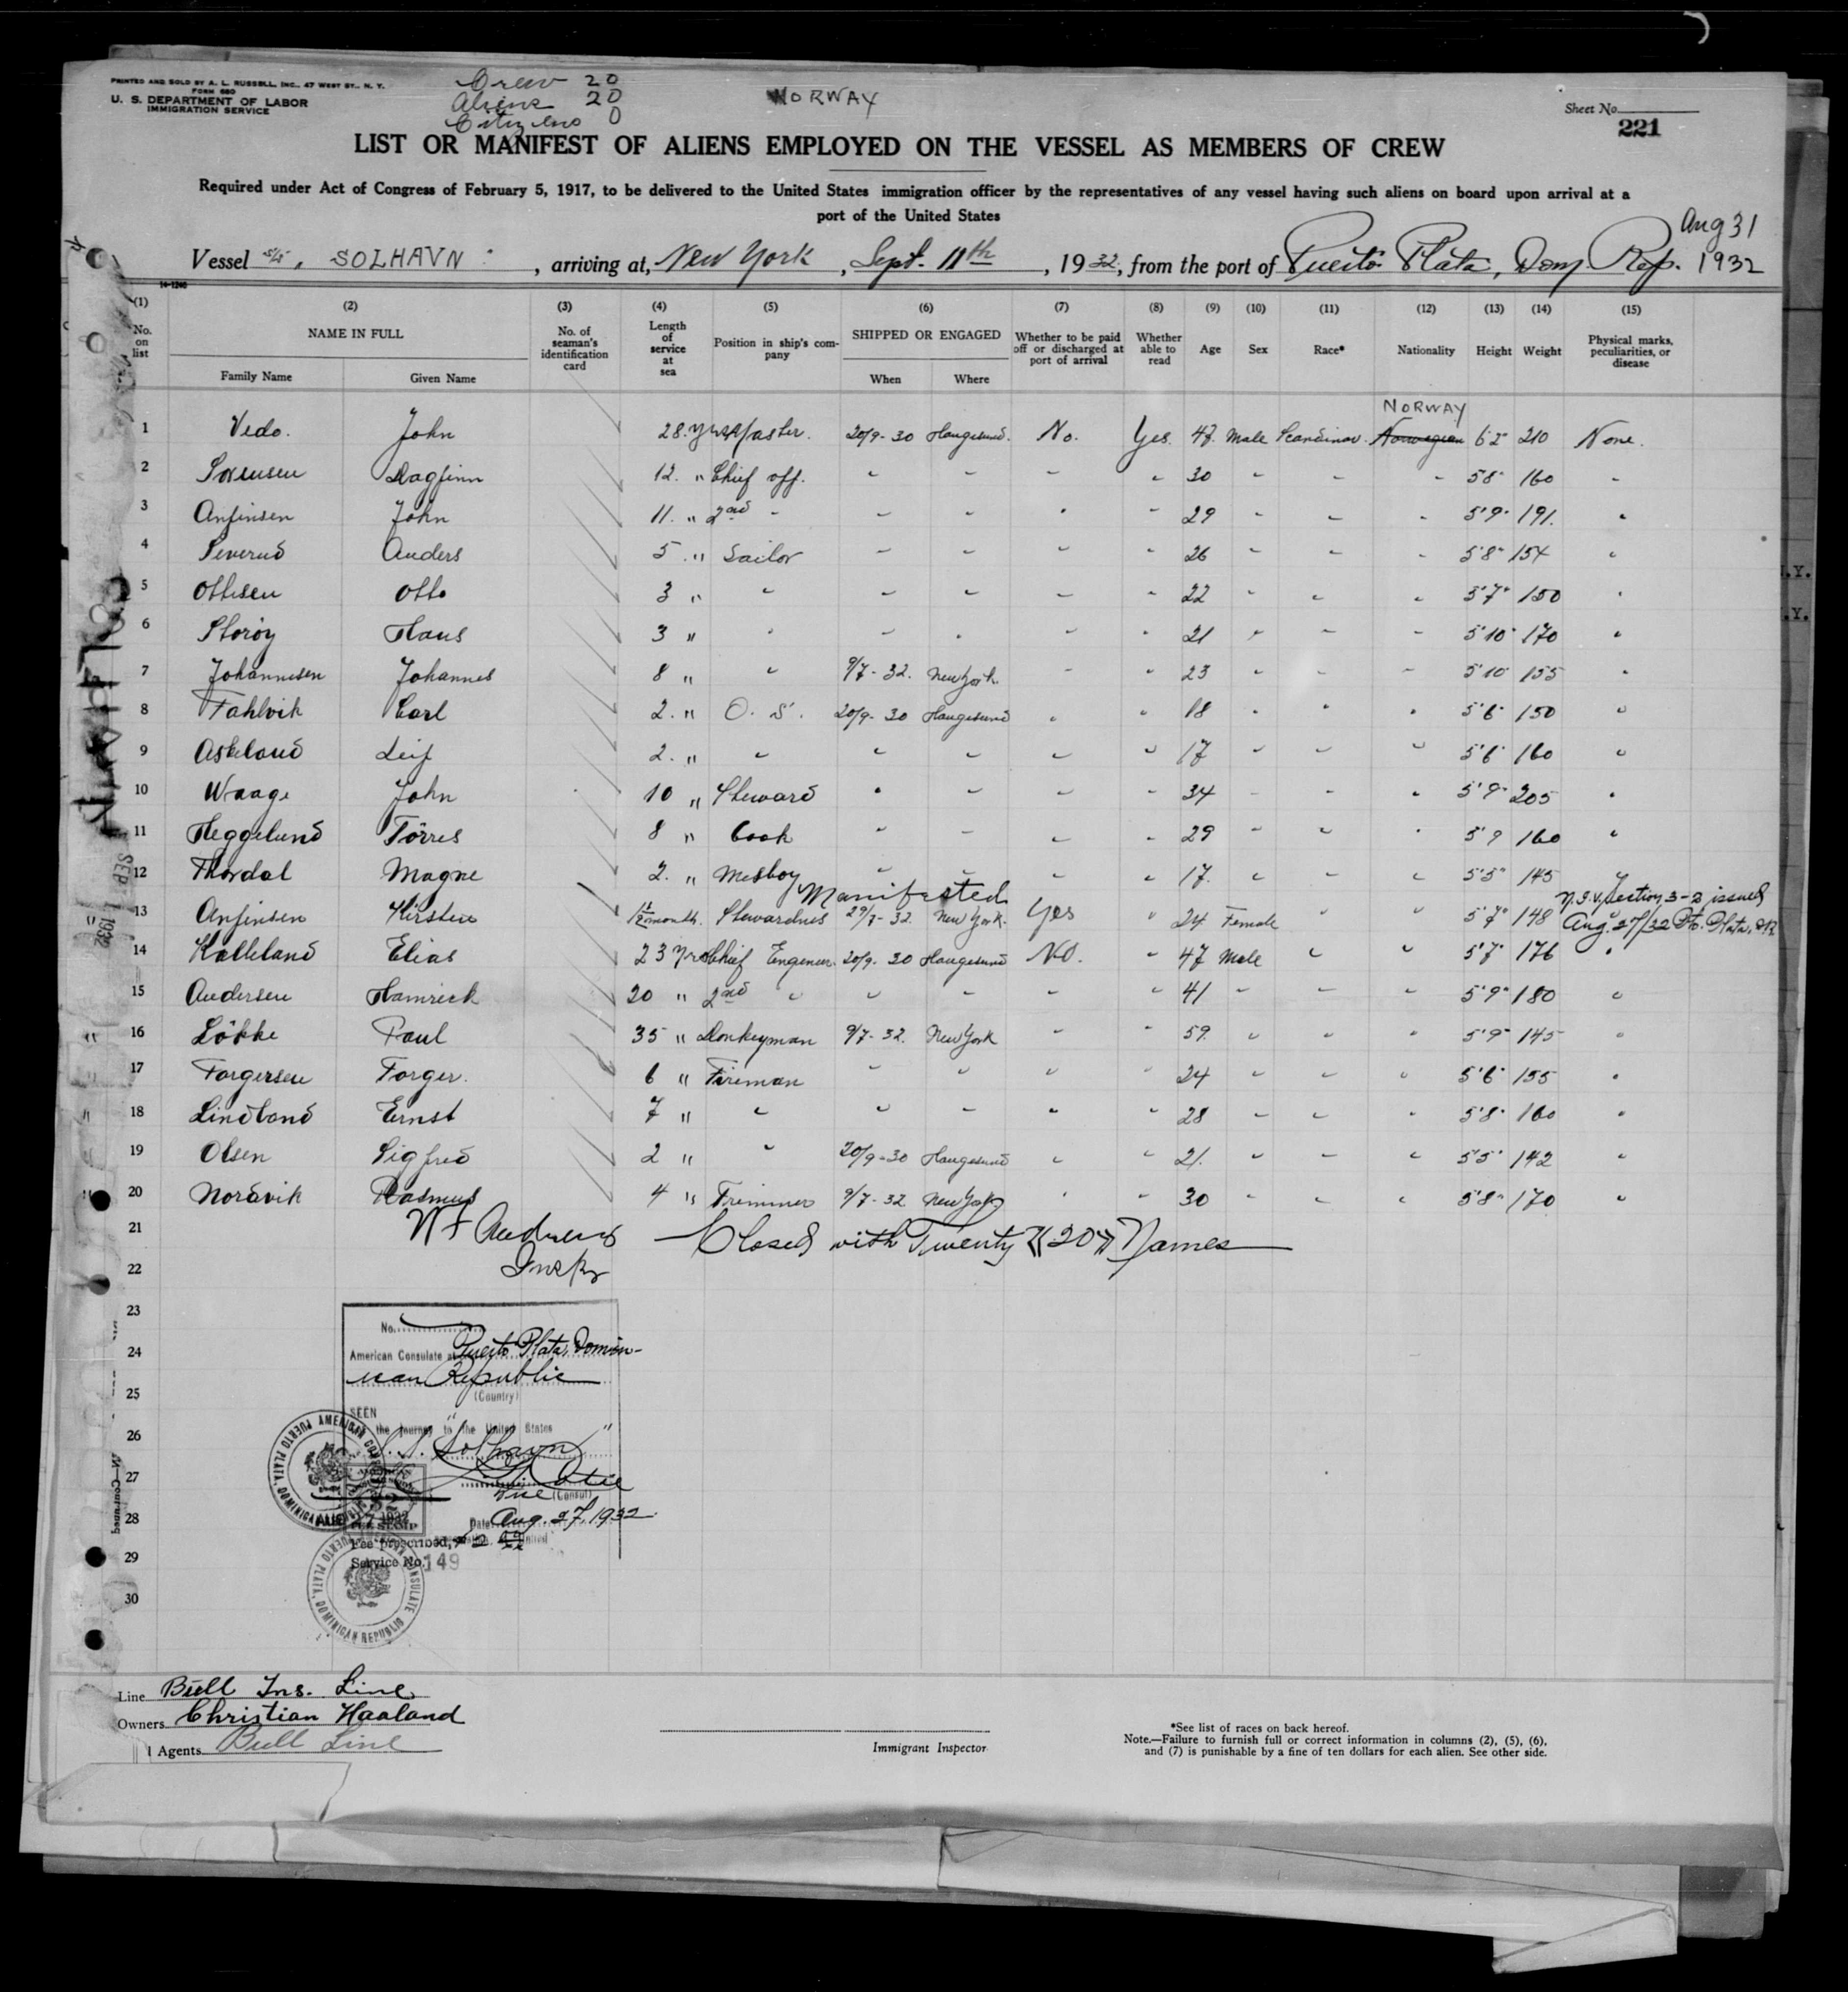 PRINTED AND SOLD BY A. L. RUSSELL, INC., 47 WEST ST., N. Y.
FORM 680
U. S. DEPARTMENT OF LABOR
IMMIGRATION SERVICE
Crew 20
Aliens 20
Citizens 0
NORWAY
Sheet No.
221
LIST OR MANIFEST OF ALIENS EMPLOYED ON THE VESSEL AS MEMBERS OF CREW
Required under Act of Congress of February 5, 1917, to be delivered to the United States immigration officer by the representatives of any vessel having such aliens on board upon arrival at a
port of the United States
Aug 31
Vessel S/S. SOLHAVN, arriving at, New York, Sept. 11th, 1932, from the port of Puerto Plata, Dom. Rep. 1932
14-1240
(1) (2) (3) (4) (5) (6) (7) (8) (9) (10) (11) (12) (13) (14) (15)
No. on list NAME IN FULL No. of seaman's identification card Length of service at sea Position in ship's company SHIPPED OR ENGAGED Whether to be paid off or discharged at port of arrival Whether able to read Age Sex Race* Nationality Height Weight Physical marks, peculiarities, or disease
Family Name Given Name When Where
NORWAY
1 Vedo. John 28. yrs Master. 20/9-30 Haugesund. No. Yes. 47. Male Scandinav. Norwegian 6'2" 210 None.
2 Sørensen Dagfinn 12. " Chief off. " " " " 30 " " " 5'8" 160 "
3 Anfinsen John 11. " 2nd " " " " " 29 " " " 5'9" 191. "
4 Severud Anders 5 " Sailor " " " " 26 " " " 5'8" 154 "
5 Ottesen Otto 3 " " " " " " 22 " " " 5'7" 150 "
6 Storöy Hans 3 " " " " " " 21 " " " 5'10" 170 "
7 Johannesen Johannes 8 " " 9/7-32. New York. " " 23 " " " 5'10" 155 "
8 Fahlvik Carl 2. " O. S. 20/9-30 Haugesund " " 18 " " " 5'6" 150 "
9 Askeland Leif 2. " " " " " " 17 " " " 5'6" 160 "
10 Waage John 10 " Steward " " " " 34 " " " 5'9" 205 "
11 Heggelund Törres 8 " Cook " " " " 29 " " " 5'9 160 "
12 Thordal Magne 2. " Mesboy " " " " 17. " " " 5'5" 145 "
Manifested
N.I.V. Section 3-2 issued
13 Anfinsen Kirsten 1 1/2 month. Stewardnes 29/7-32. New York. Yes " 24 Female " " 5'7" 148 Aug. 27/32 Pto. Plata, D.R.
14 Kalleland Elias 23 yrs Chief Engeneer 20/9-30 Haugesund No. " 47 Male " " 5'7" 176 "
15 Andersen Hamrick 20 " 2nd " " " " " 41 " " " 5'9" 180 "
16 Lökke Paul 35 " Donkeyman 9/7-32. New York " " 59. " " " 5'9" 145 "
17 Torgersen Torger. 6 " Fireman " " " " 24 " " " 5'6" 155 "
18 Lindland Ernst 7 " " " " " " 28 " " " 5'8" 160 "
19 Olsen Sigfred 2 " " 20/9-30 Haugesund " " 21. " " " 5'5" 142 "
20 Nordvik Rasmus 4 " Trimmer 9/7-32 New York " " 30 " " " 5'8" 170 "
21 W F Andrews Closed with Twenty (20) Names
22 Inspr
23
24
25
26
27
28
29
30
No.
American Consulate at Puerto Plata, Domin-
ican Republic
(Country)
SEEN
the journey to the United States
S.S. "Solhavn"
Vice (Consul)
Date Aug. 27, 1932.
Fee prescribed,
Service No. 149
AMERICAN CONSULATE
PUERTO PLATA, DOMINICAN REPUBLIC
SEP 1932
Line Bull Ins. Line
Owners Christian Haaland
Agents Bull Line
Immigrant Inspector
*See list of races on back hereof.
Note.—Failure to furnish full or correct information in columns (2), (5), (6),
and (7) is punishable by a fine of ten dollars for each alien. See other side.